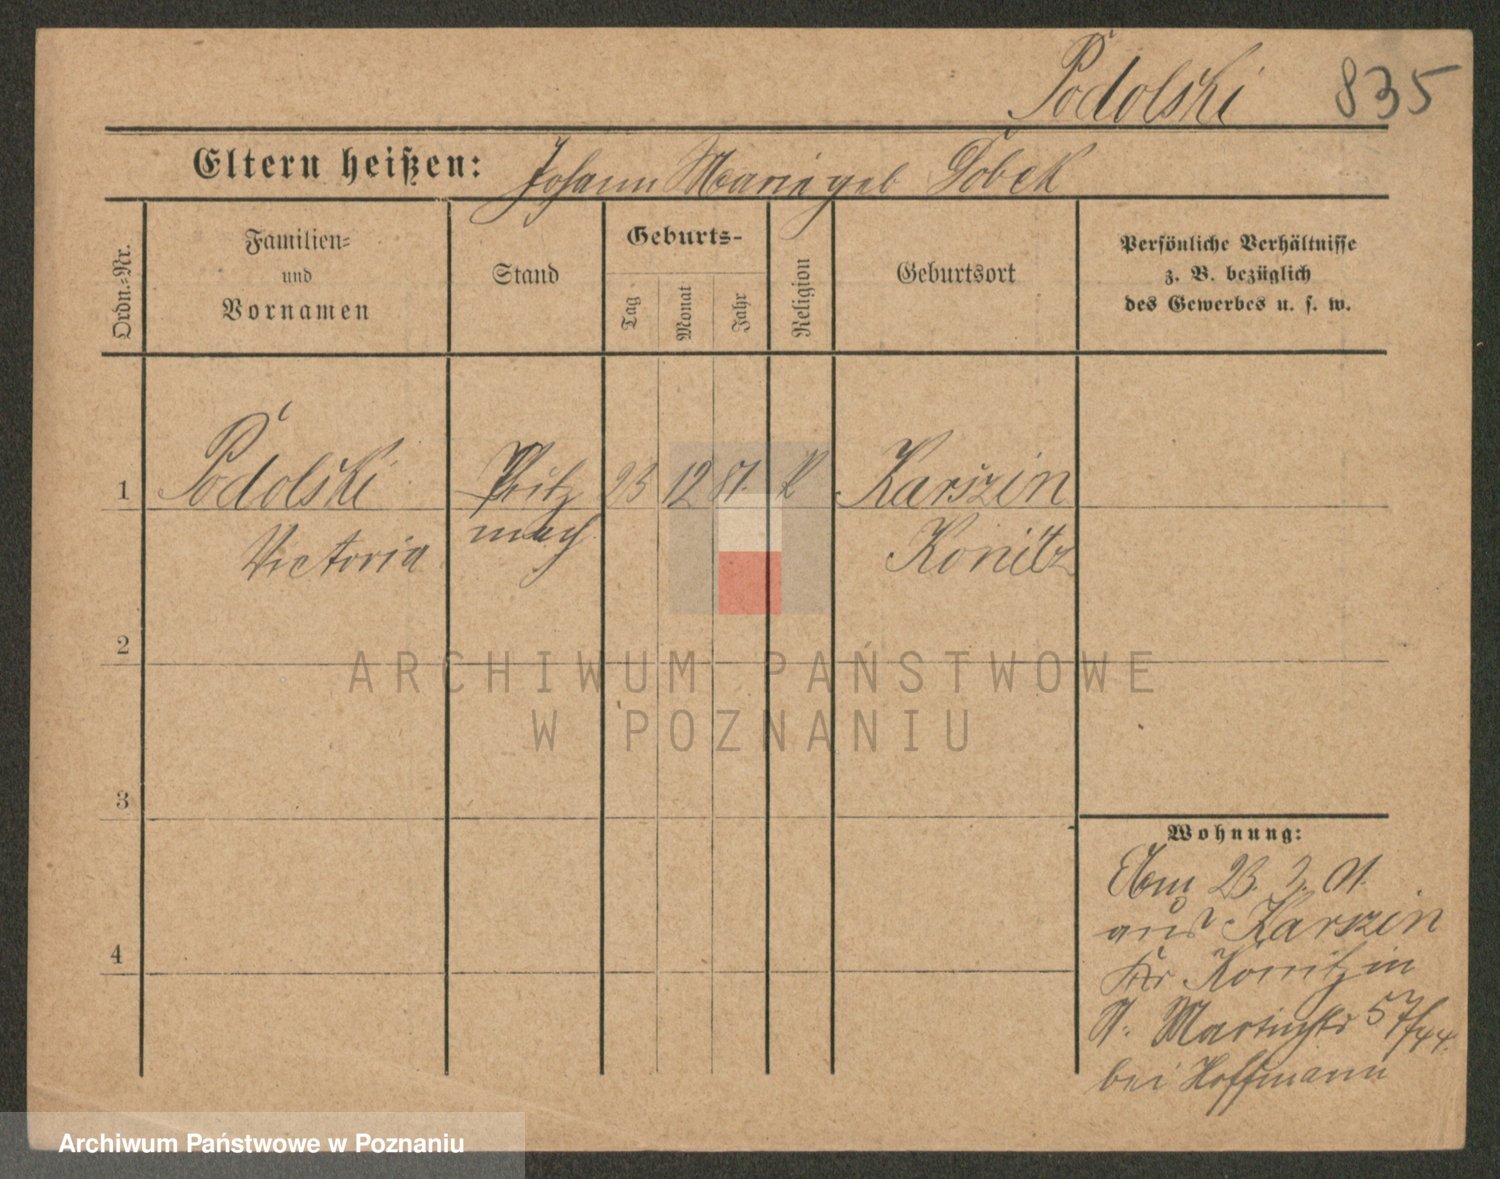 Podolski 835
Eltern heißen: Johann Marie geb Dobek
Ordn.-Nr.
Familien-
und
Vornamen
Stand
Geburts-
Tag
Monat
Jahr
Religion
Geburtsort
Persönliche Verhältnisse
z. B. bezüglich
des Gewerbes u. s. w.
1 Podolski Putz 23 12 81. K Karszin
Victoria mach Konitz
2
3
4
Wohnung:
23. 2. 01.
aus Karszin
Kr Konitz in
St. Martinstr 57/44.
bei Hoffmann
ARCHIWUM PAŃSTWOWE
W POZNANIU
Archiwum Państwowe w Poznaniu